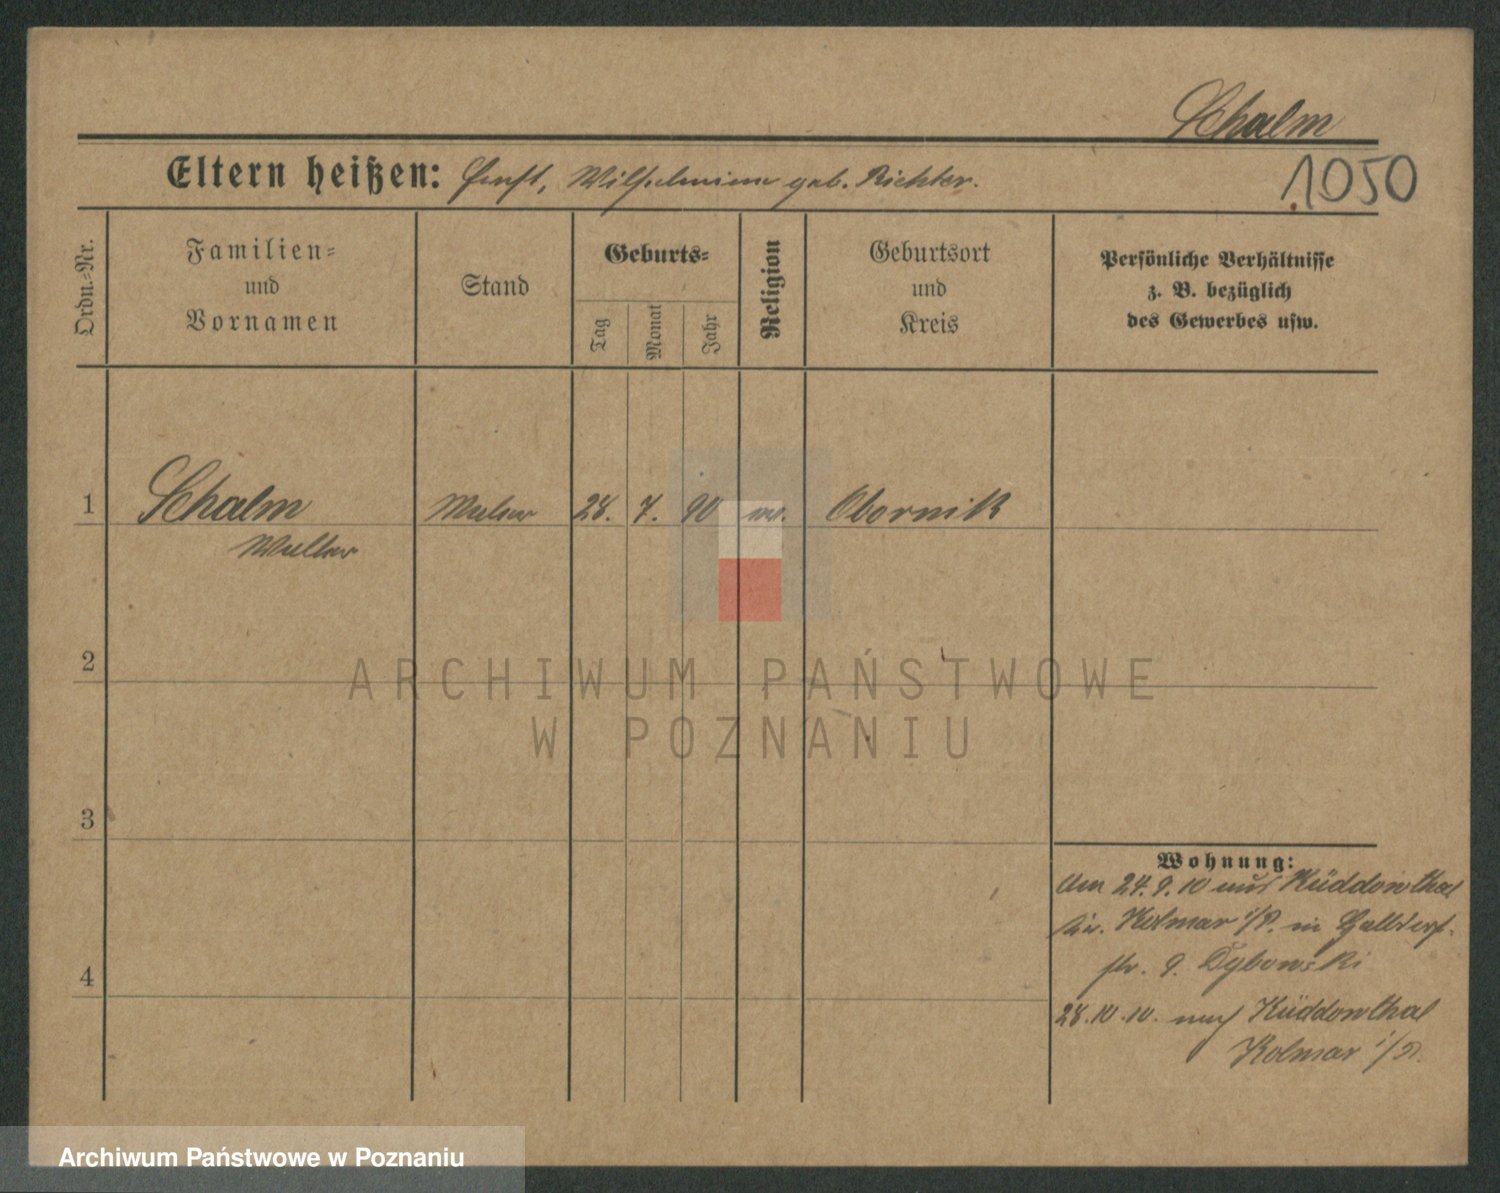 Schalm
Eltern heißen: Ernst, Wilhelmine geb. Richter.
1050
Ordn.-Nr.
Familien-
und
Vornamen
Stand
Geburts-
Tag
Monat
Jahr
Religion
Geburtsort
und
Kreis
Persönliche Verhältnisse
z. B. bezüglich
des Gewerbes usw.
1 Schalm Maler 28. 7. 90 ev. Obornik
Walter
2
3
4
Wohnung:
Am 24.9.10 aus Küddowthal
Kolmar i/P. in
str. 9. Dybowski
28.10.10. nach Küddowthal
Kolmar i/P.
ARCHIWUM PAŃSTWOWE
W POZNANIU
Archiwum Państwowe w Poznaniu